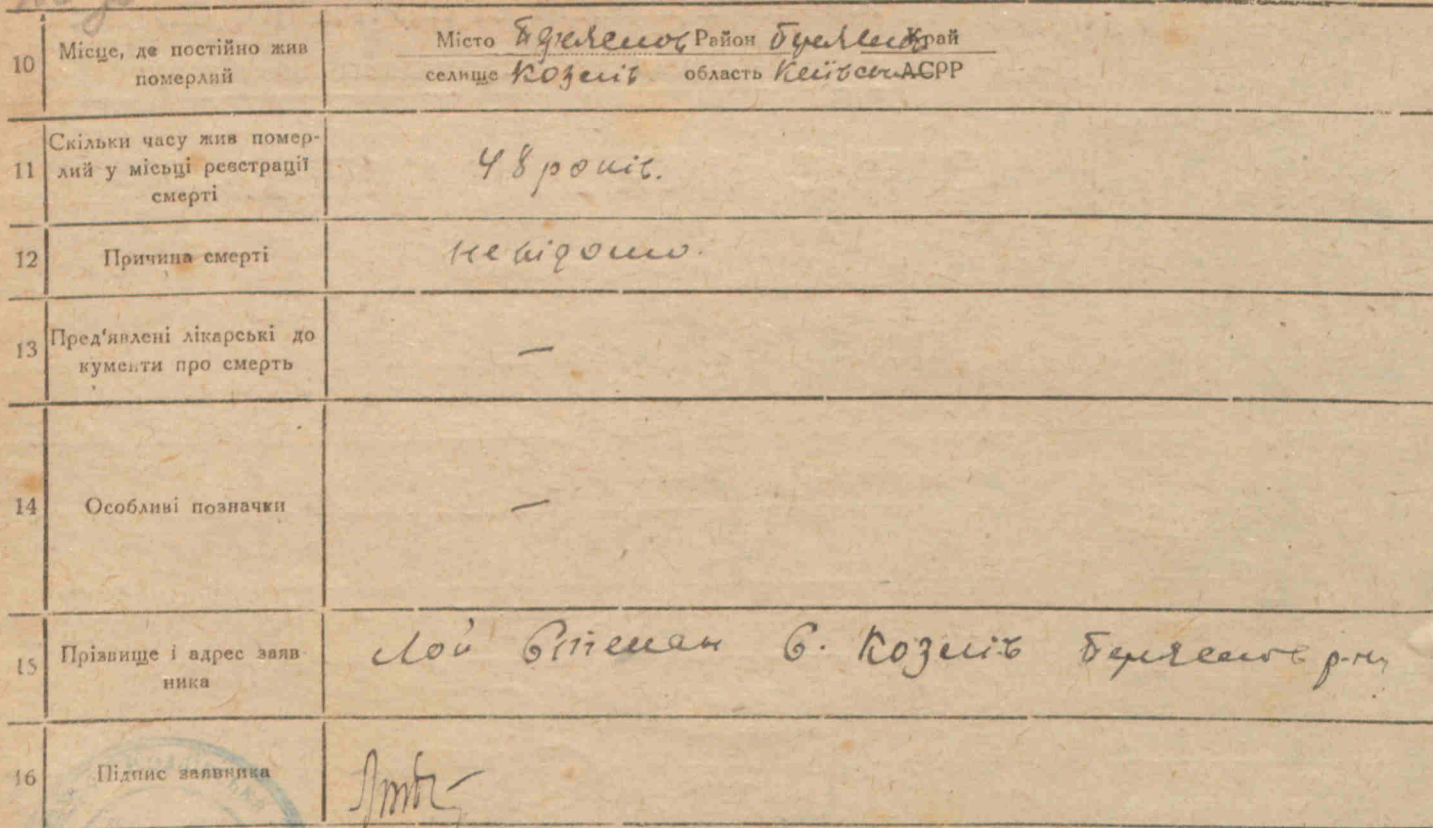 10 Місце, де постійно жив
померлий
Місто Район Край
селище Козлів область Київськ АСРР
11 Скільки часу жив помер-
лий у місьці реєстрації
смерті
48 років.
12 Причина смерті
невідомо.
13 Пред'явлені лікарські до
кументи про смерть
—
14 Особливі позначки
—
15 Прізвище і адрес заяв-
ника
Лой Степан С. Козлів р-ну
16 Підпис заявника